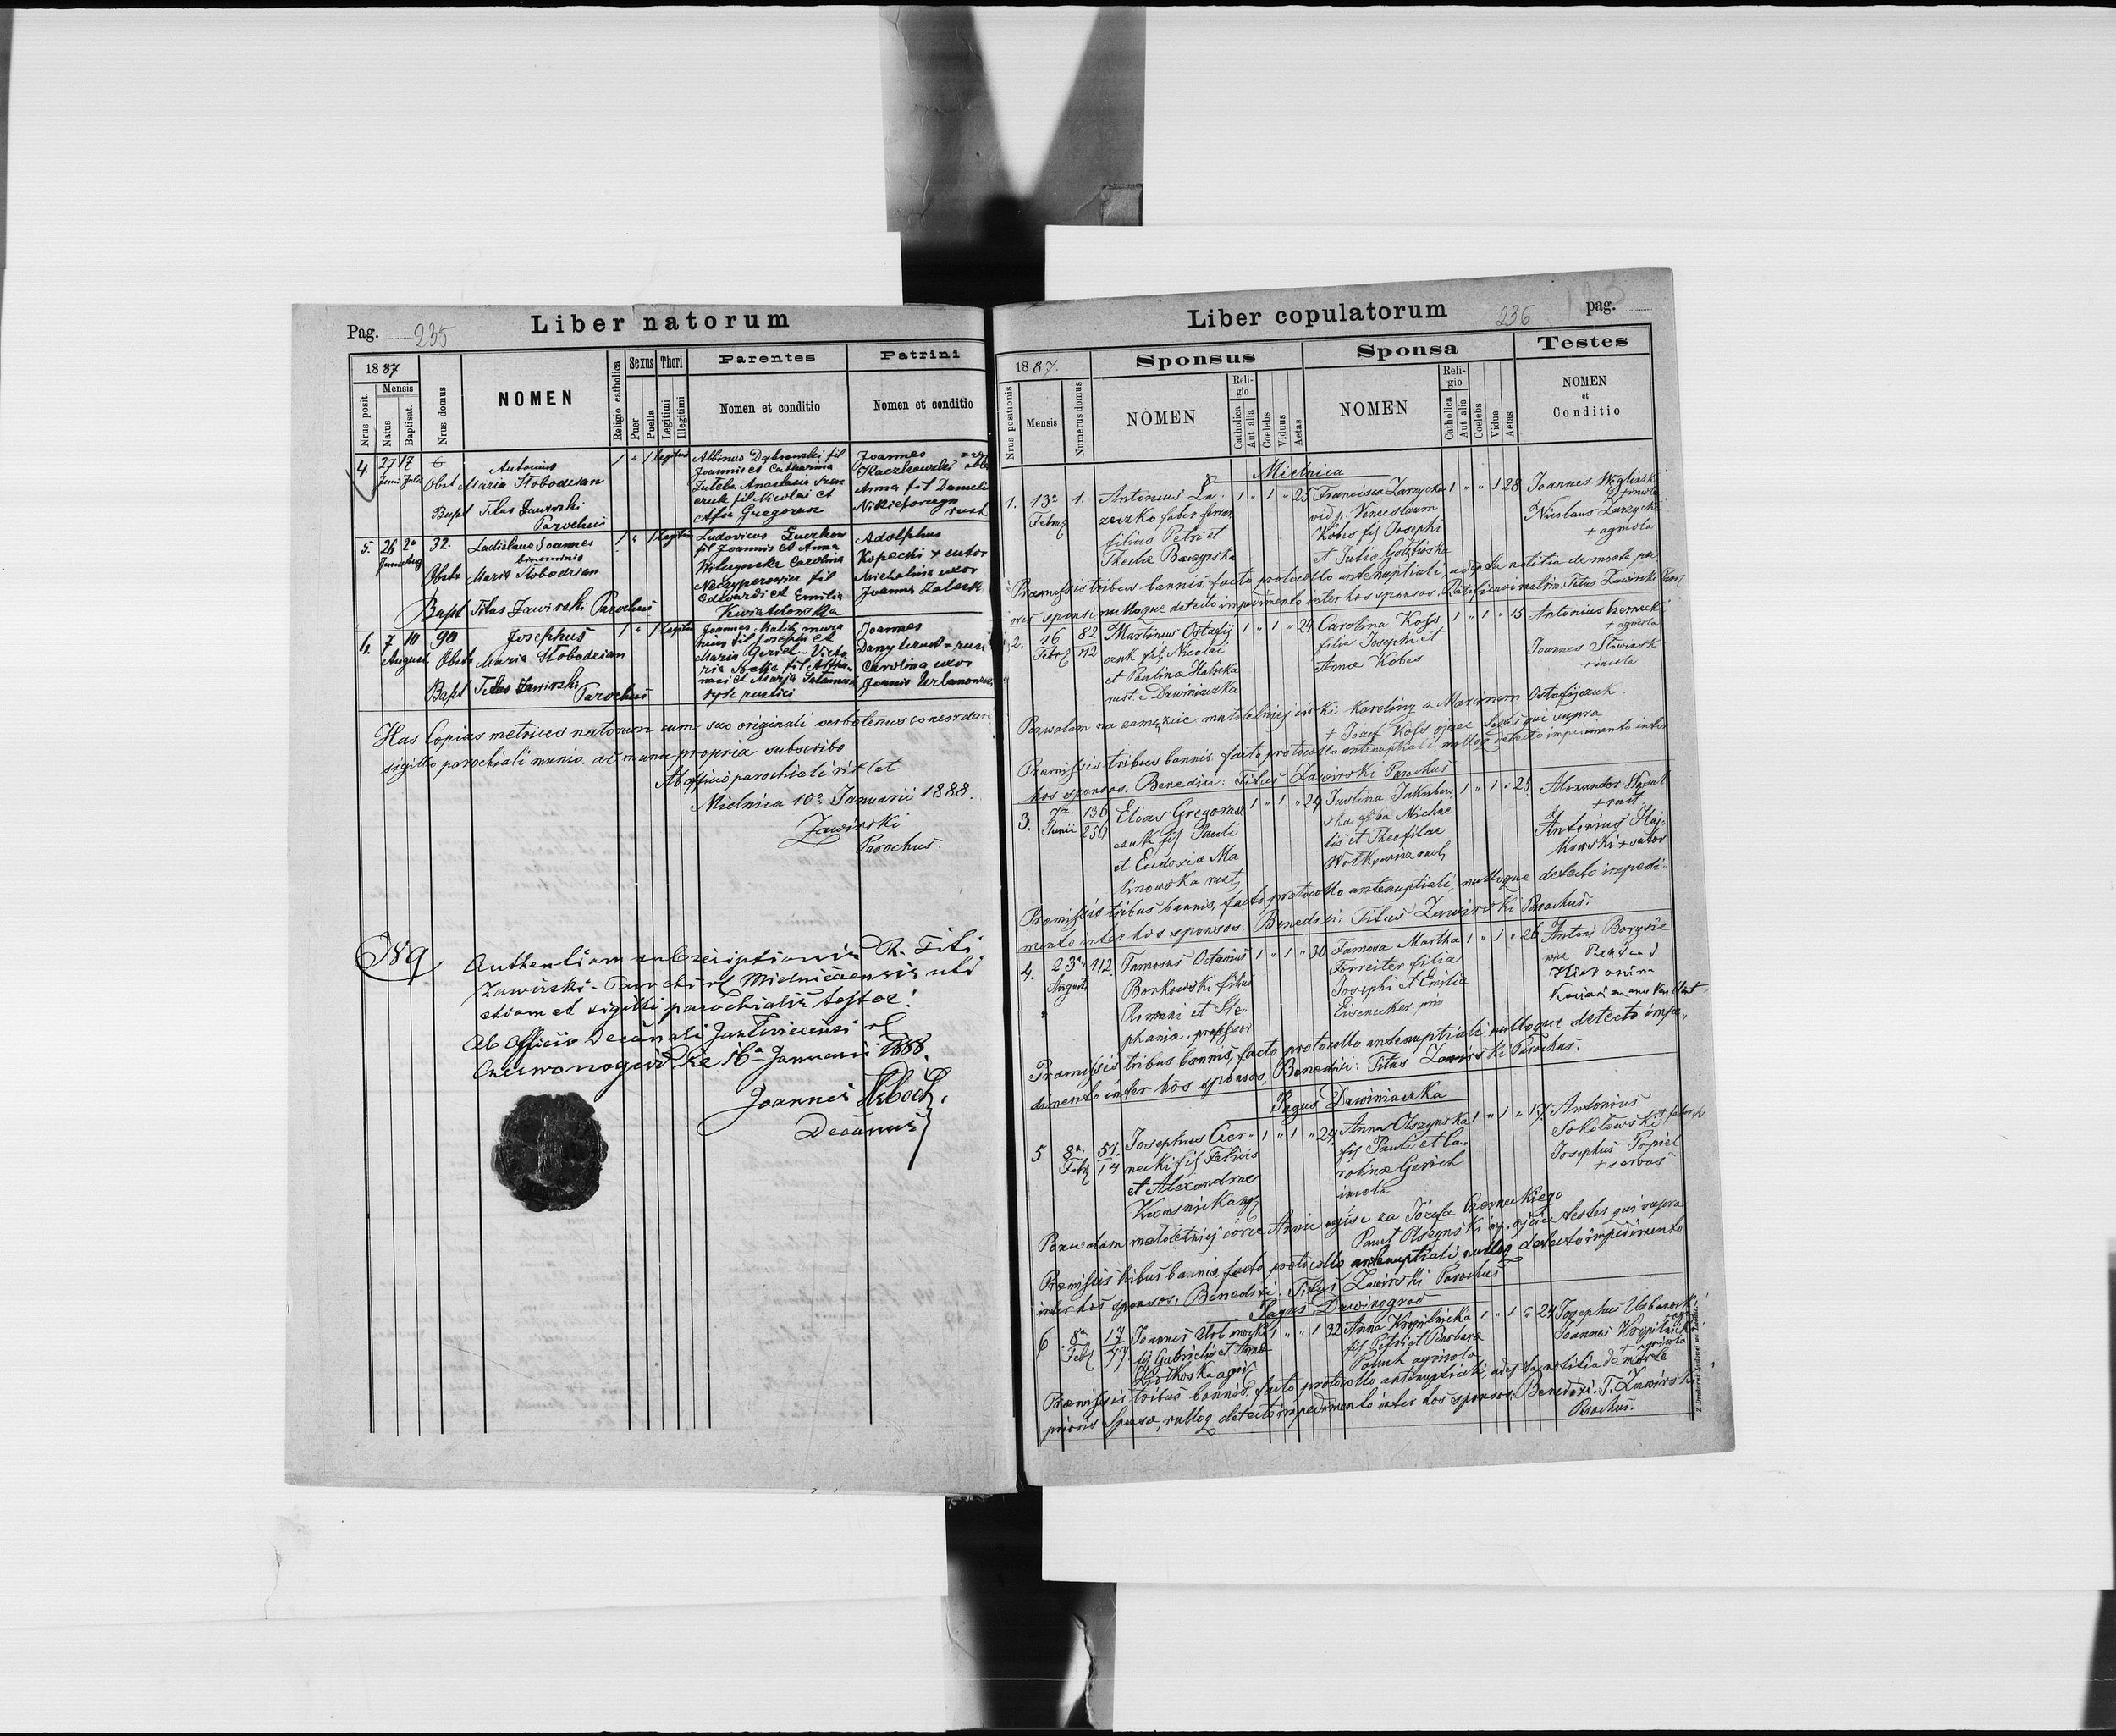 Pag. 235
Liber natorum
1887
Mensis
Nrus posit.
Natus
Baptisat.
Nrus domus
NOMEN
Religio catholica
Sexus
Puer
Puella
Thori
Legitimi
Illegitimi
Parentes
Nomen et conditio
Patrini
Nomen et conditio
4. 27 Junii 17 Julii 6
Antonius
Obst Maria Słobodzian
Bapt Titus Zawirski
Parochus
Albinus Dąbrowski fil
Joannis et Catharina
Anastasia
fil Nicolai et
Afia Gregoraz
Joannes
Kaczkowski
Anna fil Danieli
Nikieforczyn
rust
5. 26 Junii 2a Aug 32.
Ladislaus Joannes
binominis
Obste Maria Słobodzian
Bapt Titus Zawirski Parochus
Ludovicus
fil Joannis et Anna
Wilczynska Carolina
fil
Edwardi et Emilia
Kwiatkowska
Adolphus
Kopecki + sutor
Michalina uxor
Joannis
6. 7 10 August 90
Josephus
Obste Maria Słobodzian
Bapt Titus Zawirski
Parochus
Joannes Malik
fil Josephi et
Maria
rustici
Joannes
Carolina uxor
Joannis
Has Copias metrices natorum cum suo originali verbotenus concordari
sigillo parochiali munio. ac manu propria subscribo.
Ab officio parochiali rit lat
Mielnica 10a Januarii 1888.
Zawirski
Parochus.
N 9
Authentiam subscriptionis R. Titi
Zawirski - Parochi rl Mielnicaensis uti
etiam et sigilli parochialis testor!
Ab Officio Decanali Jazłoviecensi rl
Czerwonogrod die 16a Januarii 1888.
Joannes
Decanus
Liber copulatorum
236
pag.
1887.
Nrus positionis
Mensis
Numerus domus
Sponsus
NOMEN
Religio
Catholica
Aut alia
Coelebs
Viduus
Aetas
Sponsa
NOMEN
Religio
Catholica
Aut alia
Coelebs
Vidua
Aetas
Testes
NOMEN
et
Conditio
Mielnica
1. 13a Febr 1.
Antonius La-
zeczko faber ferrar
filius Petri et
Theclæ Baczynska
1 " 1 " 25
Francisca Zarzycka
vid p. Venceslaum
Kobes fil Josephi
et Julia
1 " " 1 28
Joannes Węgliński
Nicolaus Zarzycki
+ agricola
Præmissis tribus bannis, facto protocollo antenuptiali, adepta notitia de morte pri
oris sponsi nulloque detecto impedimento inter hos sponsos. Ratificavi matrim Titus Zawirski Par
2. 16 Febr 82 112
Martinus Ostafij
czuk fil Nicolai
et Paulinæ Halicka
rust. Dzwiniaczka
1 " 1 " 24
Carolina Koss
filia Josephi et
Annæ Kobes
1 " 1 " 15
Antonius Czernecki
+ agricola
Joannes
+ incola
Pozwalam na zamęzcie małoletniej córki Karoliny z Marcinem Ostafijczuk.
+ Jozef Koss ojciec testes qui supra
Præmissis tribus bannis. facto protocollo antenuptiali nulloq detecto impedimento inter
hos sponsos. Benedixi: Titus Zawirski Parochus
3. 7a. Junii 136 256
Elias Gregorasz
czuk fil Pauli
et Eudoxia Ma
linowska rust
1 " 1 " 24
Justina Jakubow
ska filia Michae
lis et Theofilæ
Wołkowicz rust
1 " 1 " 23
Alexander
+ rust
Antonius Haj-
kowski + sutor
Præmissis tribus bannis, facto protocollo antenuptiali, nulloque detecto impedi-
mento inter hos sponsos. Benedixi: Titus Zawirski Parochus.
4. 23a Augusti 112.
Famosus Octavius
Borkowski filius
Romani et Ste-
phania. professor
1 " 1 " 30
Famosa Martha
Forreiter filia
Josephi et Emilia
Eisenecker
1 " 1 " 26
Antoni
Præmissis tribus bannis, facto protocollo antenuptiali nulloque detecto impe-
dimento inter hos sponsos, Benedixi: Titus Zawirski Parochus.
Pagus Dzwiniaczka
5 8a. Febr 51. 14
Josephus Czer-
necki fil Felicis
et Alexandrae
1 " 1 " 24
Anna Olszynska
fil Pauli et Ca-
rolinæ
incola
1 " 1 " 17
Antonius
Sokołowski
Josephus Popiel
+ servus
Pozwalam małoletniej córce Annie wyjsc za Józefa Czerneckiego
Paweł Olszynski ojciec testes qui supra
Præmissis tribus bannis, facto protocollo antenuptiali nulloq detecto impedimento
inter hos sponsos. Benedixi: Titus Zawirski Parochus
Pagus Dzwinogrod
6 8a Febr 17 47.
Joannes Urbanocki
fil Gabrielis et Annæ
1 " " 1 32
Anna Kropilnicka
fil Petri et Barbara
agricola
1 " 1 " 24
Josephus Urbanocki
Joannes Kropilnicki
+ agricola
Præmissis tribus bannis, facto protocollo antenuptiali, adepta notitia de morte
prioris sponsæ, nulloq detecto impedimento inter hos sponsos. Benedixi. T. Zawirski
Parochus.